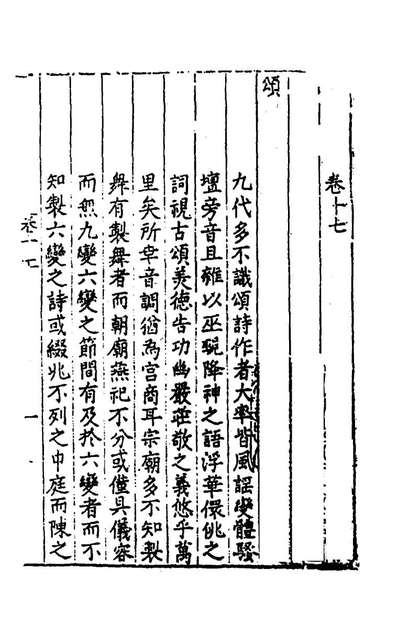 卷十七
頌
九代多不識頌詩作者大率皆風謡變體騷
壇旁音且雜以巫覡降神之語浮華儇佻之
詞視古頌美德告功幽嚴莊敬之義悠乎萬
里矣所幸音調猶為宫商耳宗廟多不知製
舞有製舞者而朝廟燕祀不分或僅具儀容
而無九變六變之節間有及於六變者而不
知製六變之詩或綴兆不列之中庭而陳之
卷十七
一